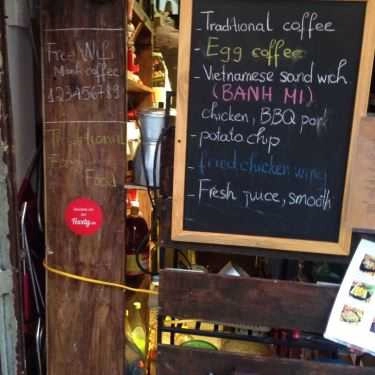 Free Wifi
Manh coffee
123456789
Traditional
Food
- Traditional coffee
- Egg coffee
- Vietnamese sandwich
(BANH MI)
chicken, BBQ pork
- potato chip
- fried chicken wing
- Fresh juice, smooth
Foody.vn